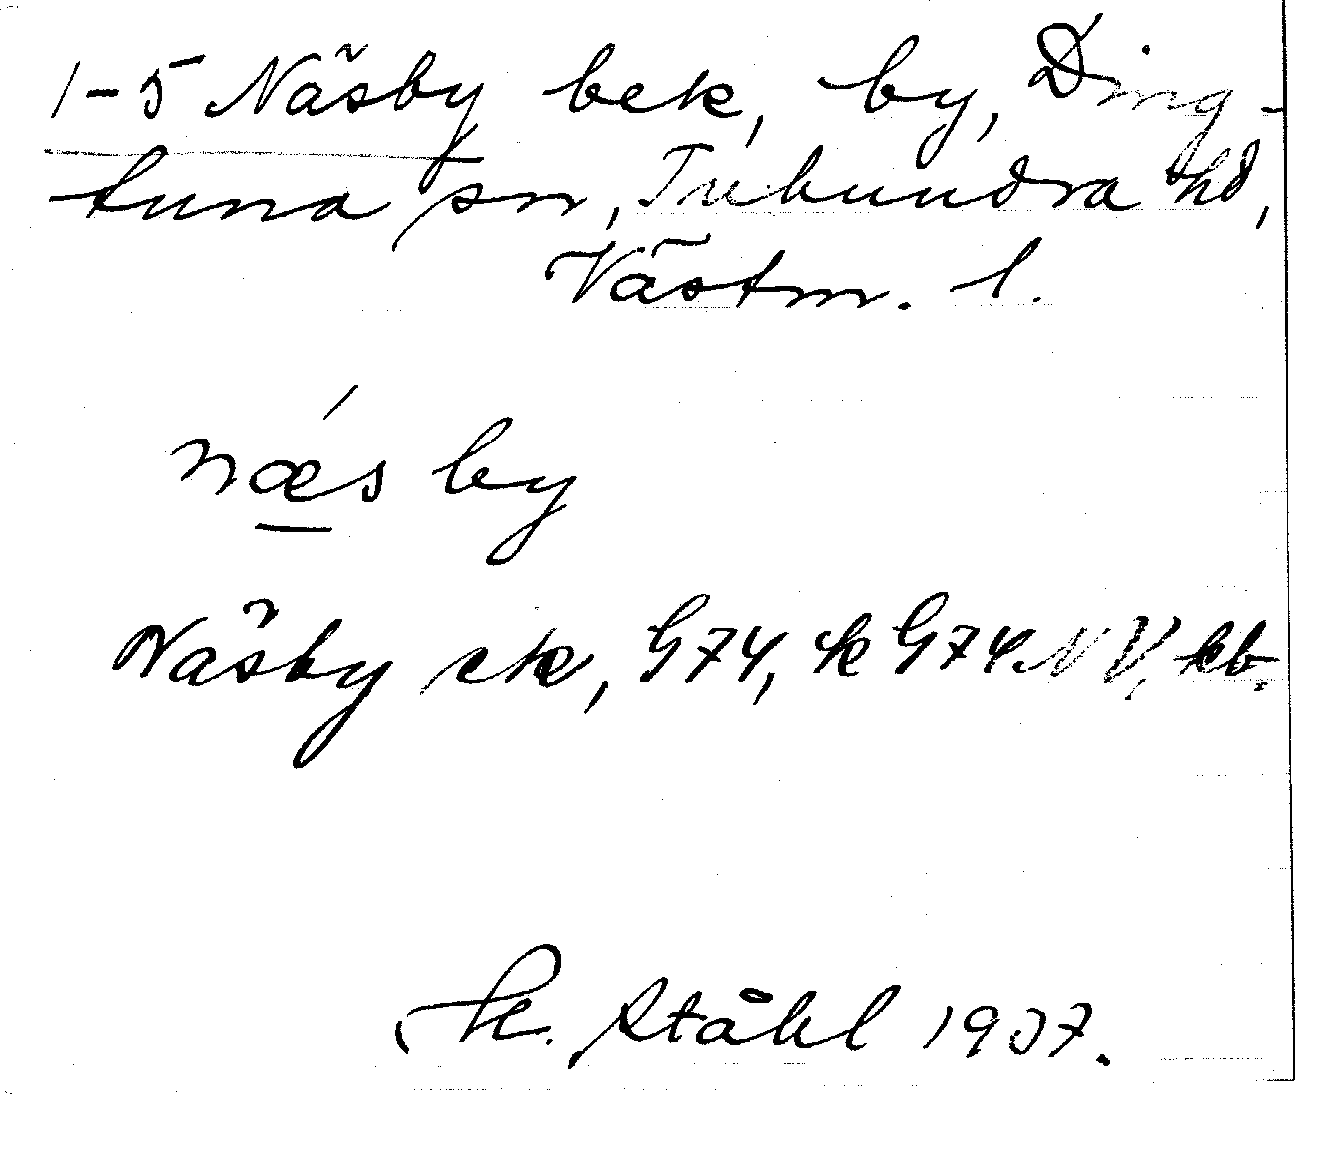 1-5 Näsby bek, by, Ding-
tuna sn, Tuhundra hd,
Västm. l.
næ´s by
Näsby ek, G74, k G74 NV, kb.
H. Ståhl 1937.